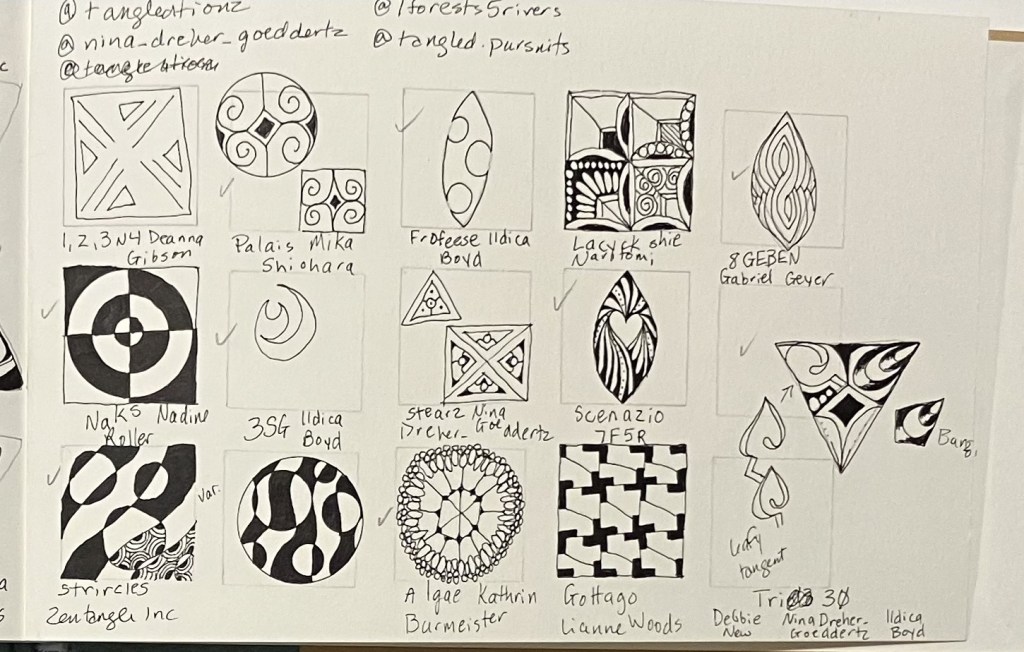 @tangleationz
@nina_dreher_goeddertz
@1forests5rivers
@tangled.pursuits
1,2,3 N4 Deanna
Gibson
Palais Mika
Shiohara
Frofeese Ildica
Boyd
Lacyck shie
Naritomi
8GEBEN
Gabriel Geyer
Naks Nadine
Roller
3SG Ildica
Boyd
Stearz Nina
Dreher-Goeddertz
Scenazio
7F5R
Bang,
var.
leafy
tangent
strircles
Zentangle Inc
Algae Kathrin
Burmeister
Gottago
Lianne Woods
Tri 30
Debbie
New
Nina Dreher-
Goeddertz
Ildica
Boyd